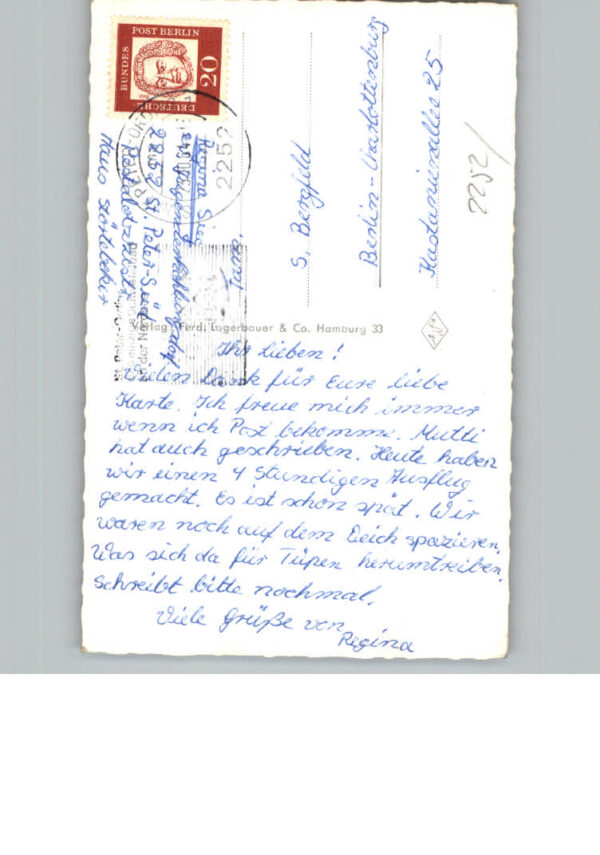 DEUTSCHE
BUNDES
POST BERLIN
20
2252
Regina
Jugenderholungsdorf
2252 St. Peter-Süd
Haus Störtebeker
An
S. Bergfeld
Berlin-Charlottenburg
Kastanienallee 25
2252/
Verlag Ferd. Lagerbauer & Co. Hamburg 33
Ihr lieben!
Vielen Dank für Eure liebe
Karte. Ich freue mich immer
wenn ich Post bekomme. Mutti
hat auch geschrieben. Heute haben
wir einen 4 Stundigen Ausflug
gemacht. Es ist schon spät. Wir
waren noch auf dem Deich spazieren.
Was sich da für Tüpen herumtreiben.
Schreibt bitte nochmal.
Viele Grüße von
Regina